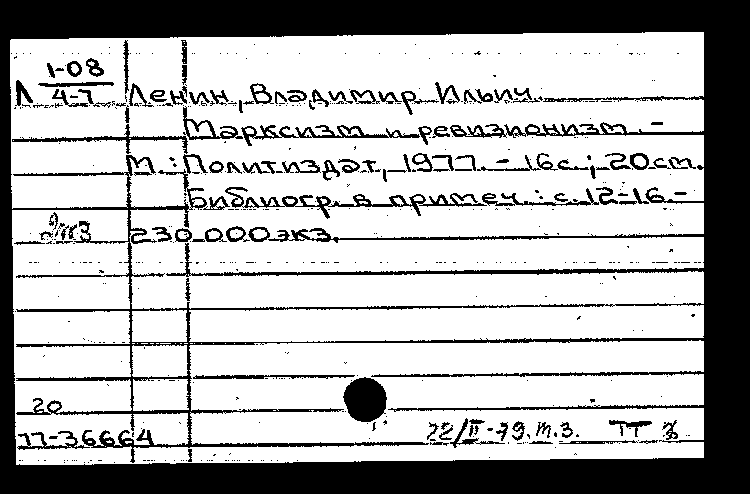 1-08
Л 4-7 Ленин, Владимир Ильич.
Марксизм и ревизионизм. -
М.: Политиздат, 1977. - 16с.; 20см.
Библиогр. в примеч.: с. 12-16. -
2тз 230 000 экз.
20
77-36664
22/II-79. т.з. ТТ